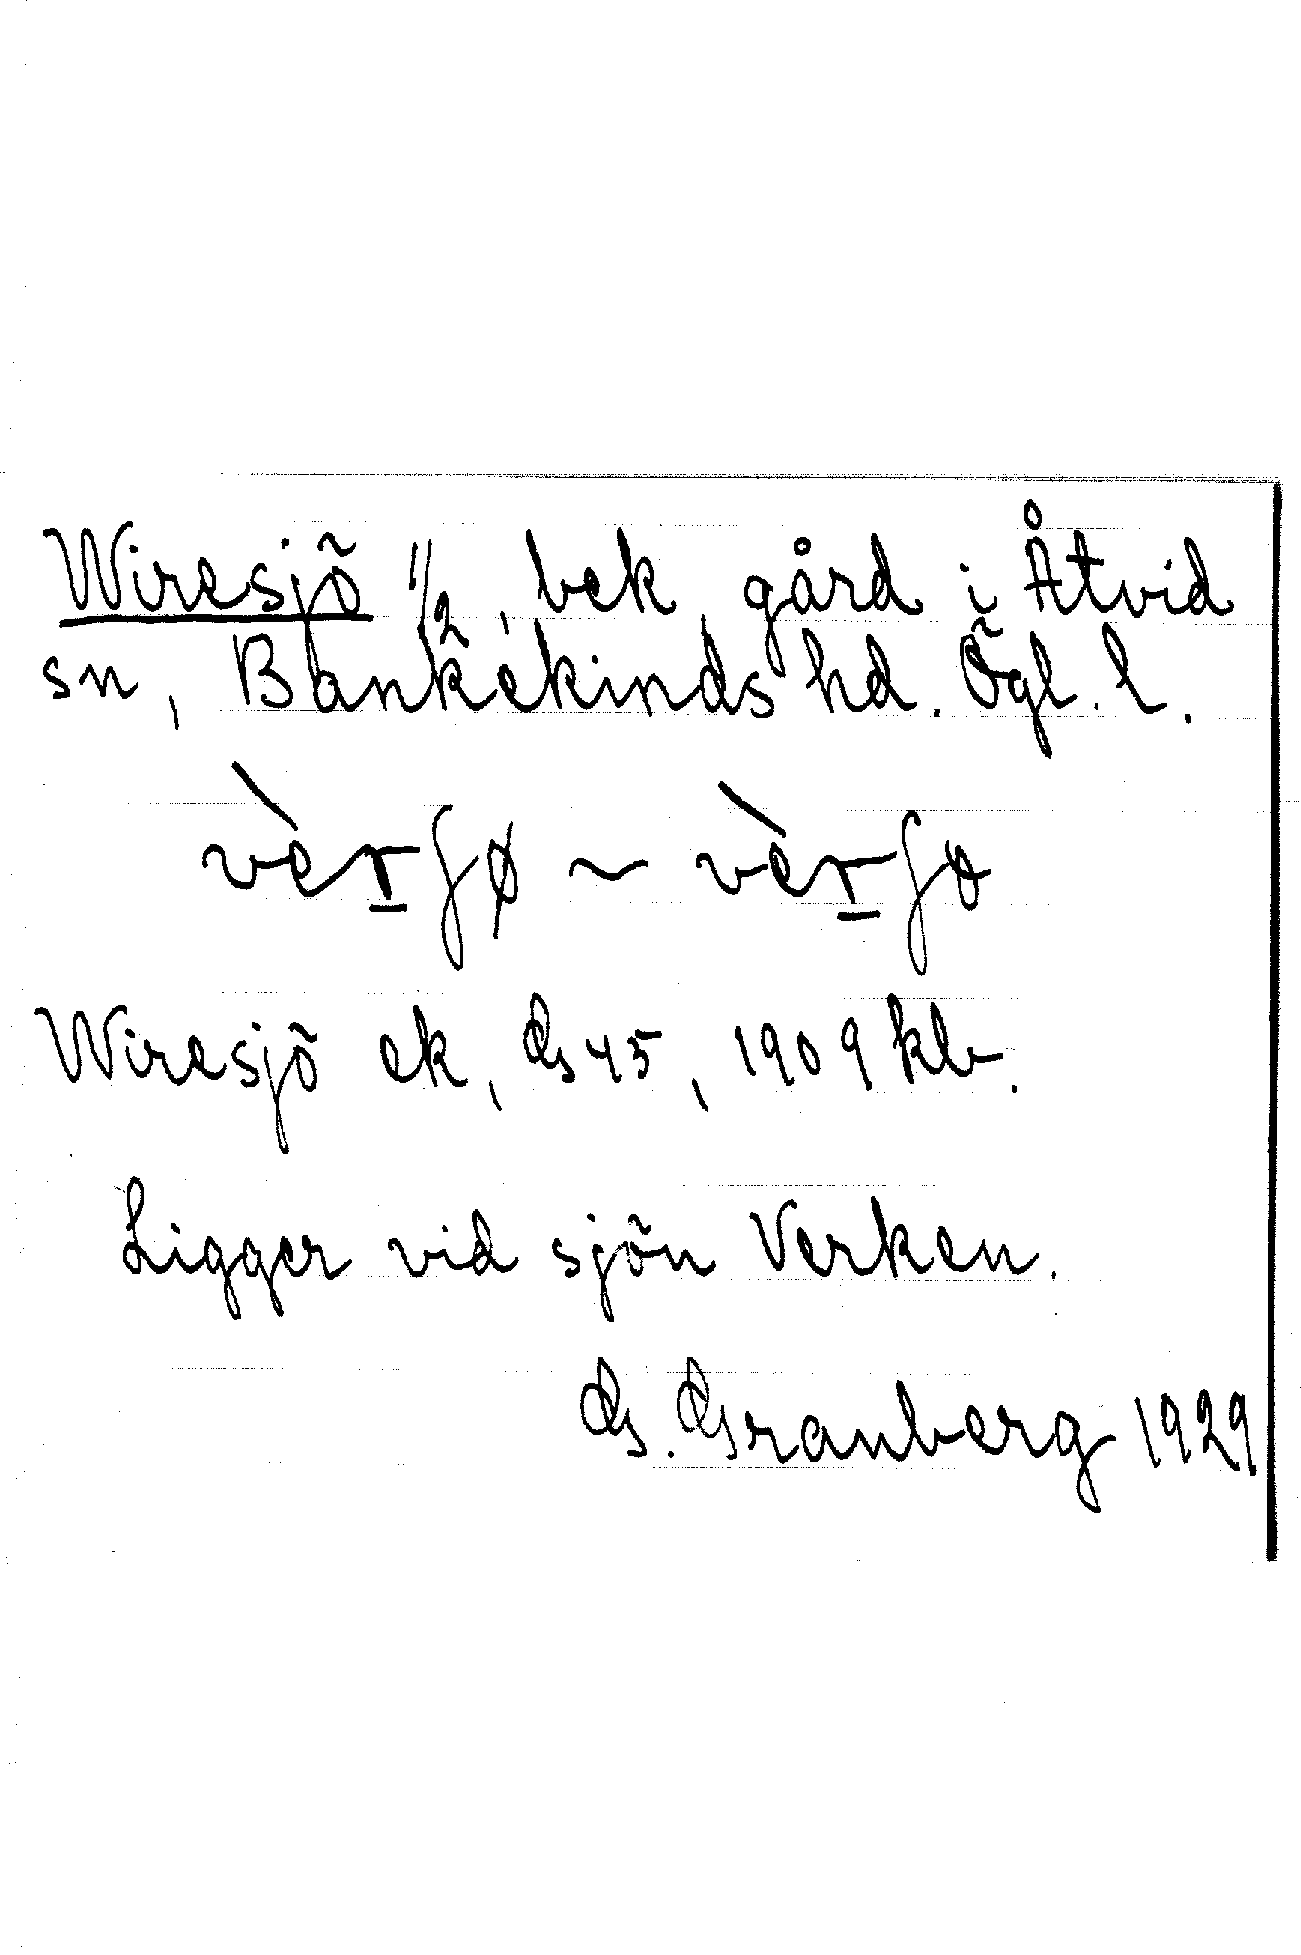 Wiresjö 1/2, bek, gård i Åtvid
sn, Bankekinds hd. Ögl. l.
vèr̲ʃø ~ vèr̲ʃo
Wiresjö ek, G 45, 1909 kb.
Ligger vid sjön Verken.
G. Granberg 1929